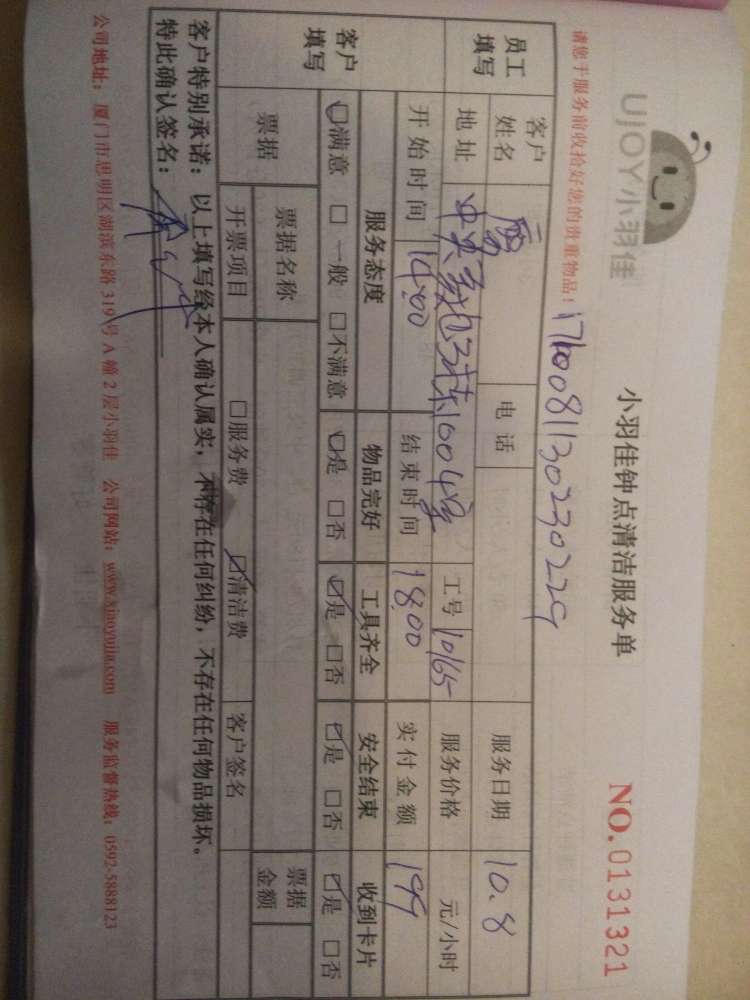 UjOY小羽佳
小羽佳钟点清洁服务单
NO.0131321
请您于服务前收拾好您的贵重物品！
1760081130230229
员工填写
客户姓名
电话
服务日期 10.8
地址 3栋1004室
工号 10165
服务价格 元/小时
开始时间 14:00
结束时间 18:00
实付金额 199
客户填写
服务态度 物品完好 工具齐全 安全结束 收到卡片
☑满意 □一般 □不满意 ☑是 □否 ☑是 □否 ☑是 □否 ☑是 □否
票据
票据名称
票据金额
开票项目 □服务费 ☑清洁费 客户签名
客户特别承诺：以上填写经本人确认属实，不存在任何纠纷，不存在任何物品损坏。
特此确认签名：
公司地址：厦门市思明区湖滨东路319号A幢2层小羽佳 公司网站：www.xiaoyujia.com 服务监督热线：0592-5888123